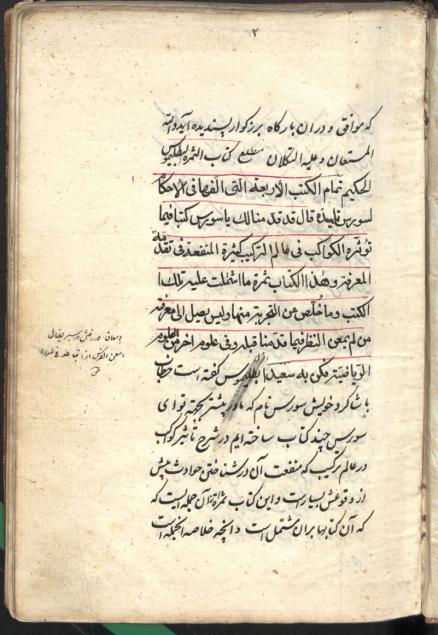 ۲
که موافق و در ان بارکاه بزرکوار پسندیده آید والله
المستعان وعلیه التکلان مطلع کتاب الثمرة لبطلمیوس
الحکیم تمام الکتب الاربعة التی الفها فی الاحکام
لسورس تلمیذه قال قد قدمنا لک یا سورس کتبا فیما
تؤثره الکواکب فی عالم الترکیب کثیرة المنفعة فی تقدمة
المعرفة وهذا الکتاب ثمرة ما اشتملت علیه تلک
الکتب وما خلص من التجربة منها ولیس یصل الی معرفته
من لم یمعن النظر فیما قدمنا قبله وفی علوم اخر من العلوم
الریاضیة فکن به سعیدا بطلمیوس کفته است خطاب
با شاکرد خویش سورس نام که ما در بیشتر بجهة تو ای
سورس چند کتاب ساخته ایم در شرح تأثیر کواکب
در عالم ترکیب که منفعت آن در شناختن حوادث پیش
از وقوعش بسیارست و این کتاب ثمرۀ آن جمله است که
که آن کتابها بران مشتمل است و انچه خلاصه